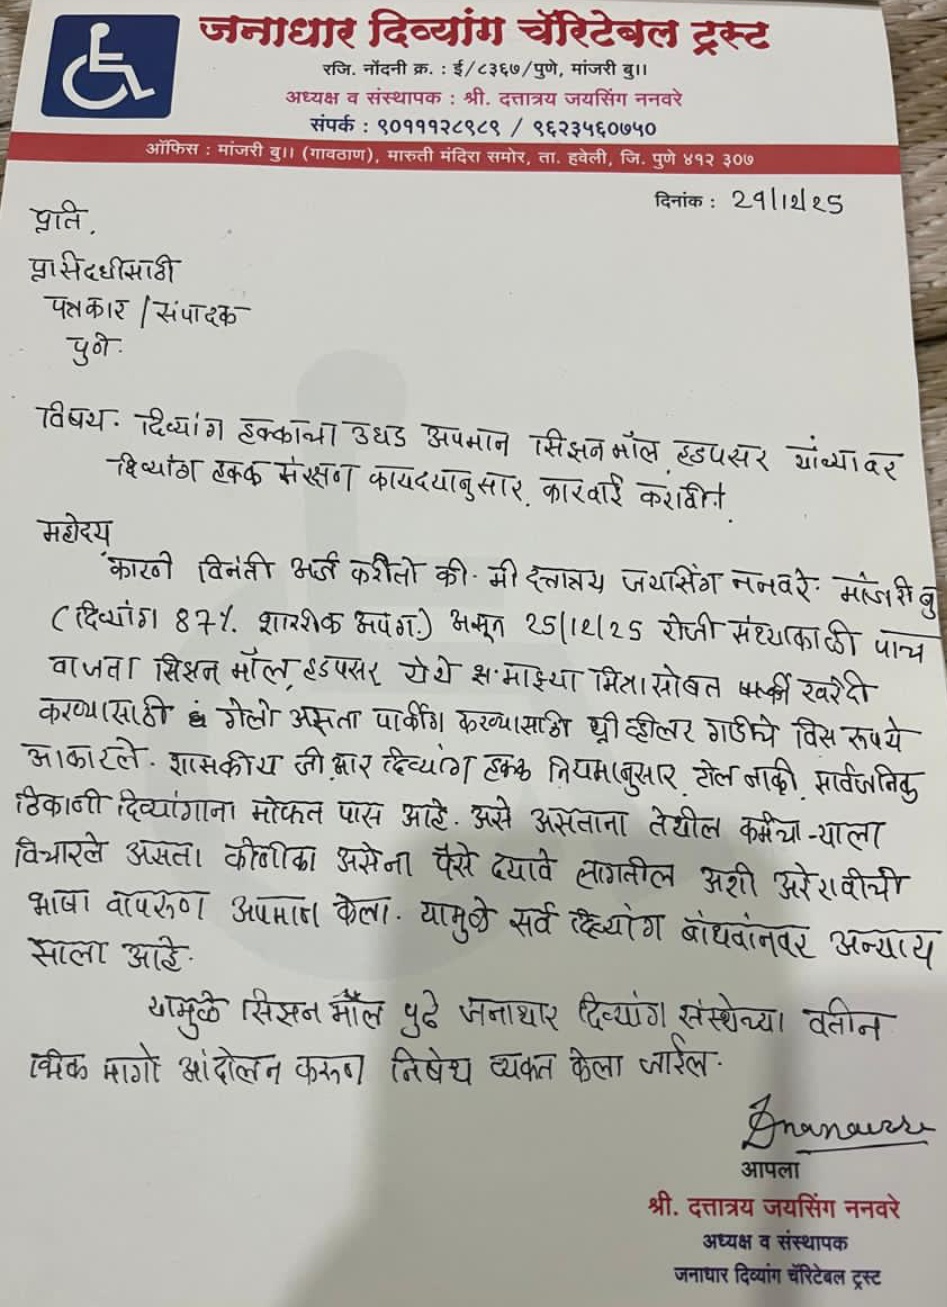 जनाधार दिव्यांग चॅरिटेबल ट्रस्ट
रजि. नोंदनी क्र. : ई/८३६७/पुणे, मांजरी बु॥
अध्यक्ष व संस्थापक : श्री. दत्तात्रय जयसिंग ननवरे
संपर्क : ९०१११२८९८९ / ९६२३५६०७५०
ऑफिस : मांजरी बु॥ (गावठाण), मारुती मंदिरा समोर, ता. हवेली, जि. पुणे ४१२ ३०७
दिनांक : 29/12/25
प्रति,
प्रसिद्धीसाठी
पत्रकार / संपादक
पुणे.
विषय - दिव्यांग हक्काचा उघड अपमान सिझन मॉल, हडपसर यांच्यावर
दिव्यांग हक्क संरक्षण कायदयानुसार, कारवाई करावी!
महोदय,
कारणे विनंती अर्ज करीतो की. मी दत्तात्रय जयसिंग ननवरे. मांजरी बु
(दिव्यांग 87% शारीरीक अपंग.) असून 25/12/25 रोजी संध्याकाळी पाच
वाजता सिझन मॉल, हडपसर येथे माझ्या मित्रासोबत खरेदी
करण्यासाठी गेलो असता पार्कींग करण्यासाठी थ्री व्हीलर गाडीचे विस रूपये
आकारले. शासकीय जी.आर दिव्यांग हक्क नियमानुसार, टोल नाकी, सार्वजनिक
ठिकाणी दिव्यांगाना मोफत पास आहे. असे असताना तेथील कर्मचा-याला
विचारले असता कोणीका असेना पैसे दयावे लागतील अशी अरेरावीची
भाषा वापरुण अपमान केला. यामुळे सर्व दिव्यांग बांधवांनवर अन्याय
झाला आहे.
यामुळे सिझन मॉल पुढे जनाधार दिव्यांग संस्थेच्या वतीन
भिक मागो आंदोलन करुण निषेध व्यक्त केला जाईल.
आपला
श्री. दत्तात्रय जयसिंग ननवरे
अध्यक्ष व संस्थापक
जनाधार दिव्यांग चॅरिटेबल ट्रस्ट